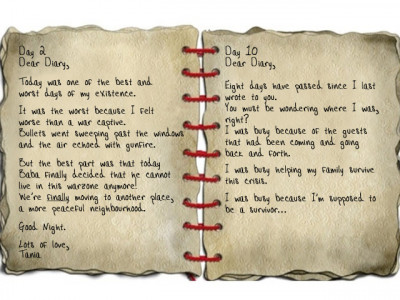 Day 2
Dear Diary,
Today was one of the best and
worst days of my existence.
It was the worst because I felt
worse than a war captive.
Bullets went sweeping past the windows
and the air echoed with gunfire.
But the best part was that today
Baba finally decided that he cannot
live in this warzone anymore!
We're finally moving to another place,
a more peaceful neighbourhood.
Good Night.
Lots of love,
Tania.
Day 10
Dear Diary,
Eight days have passed since I last
wrote to you.
You must be wondering where I was,
right?
I was busy because of the guests
that had been coming and going
back and forth.
I was busy helping my family survive
this crisis.
I was busy because I'm supposed to
be a survivor...